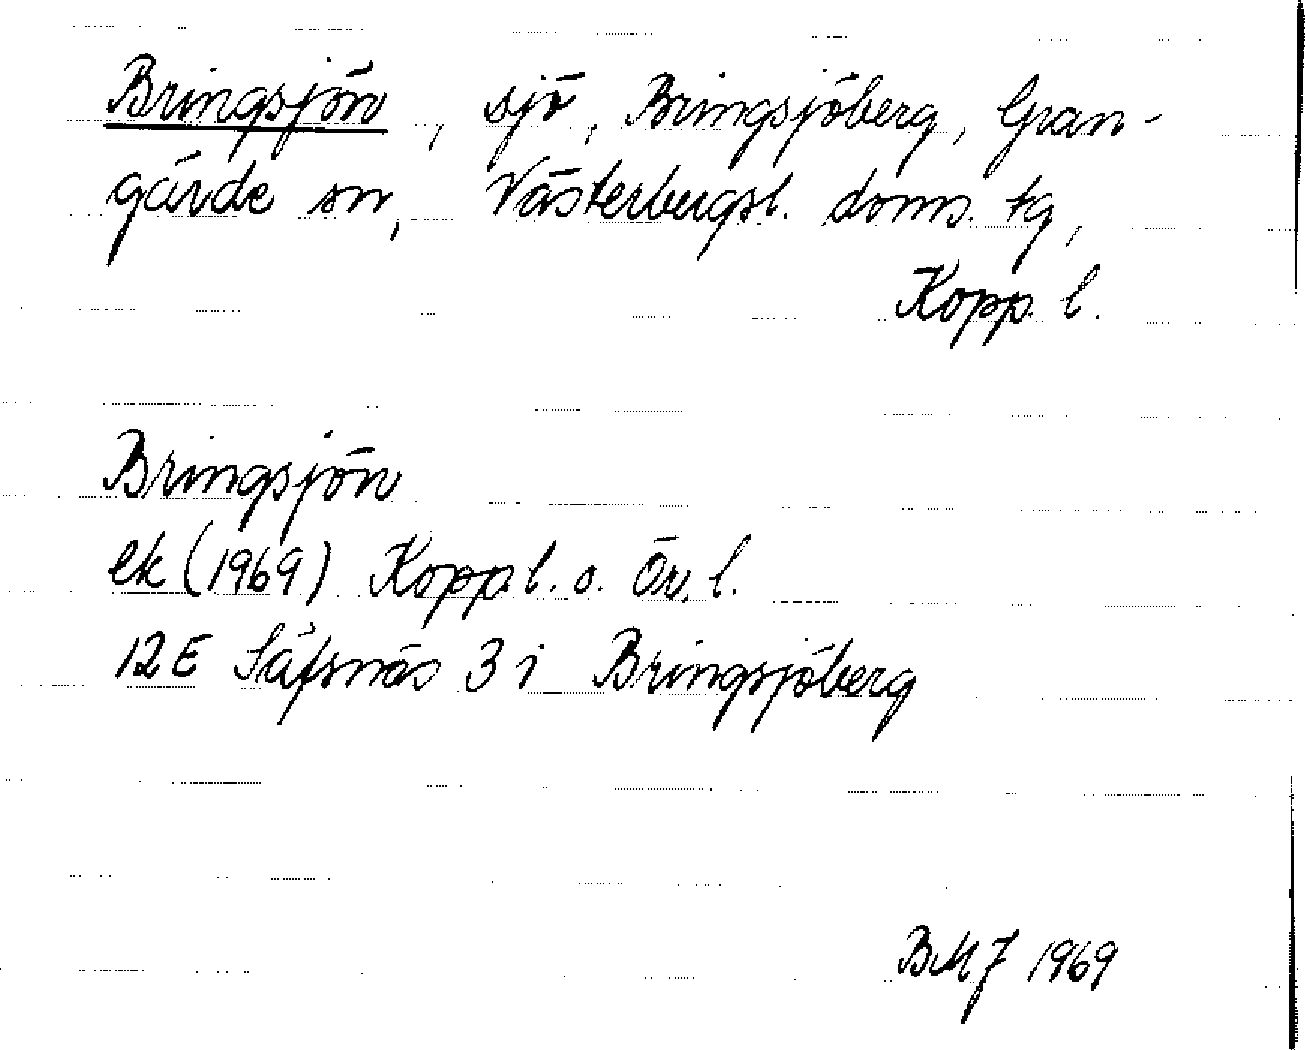 Bringsjön, sjö, Bringsjöberg, Gran-
gärde sn, Västerbergsl. doms. tg,
Kopp. l.
Bringsjön
ek (1969) Kopp. l. o. Ör. l.
12E Säfsnäs 3 i Bringsjöberg
BMJ 1969